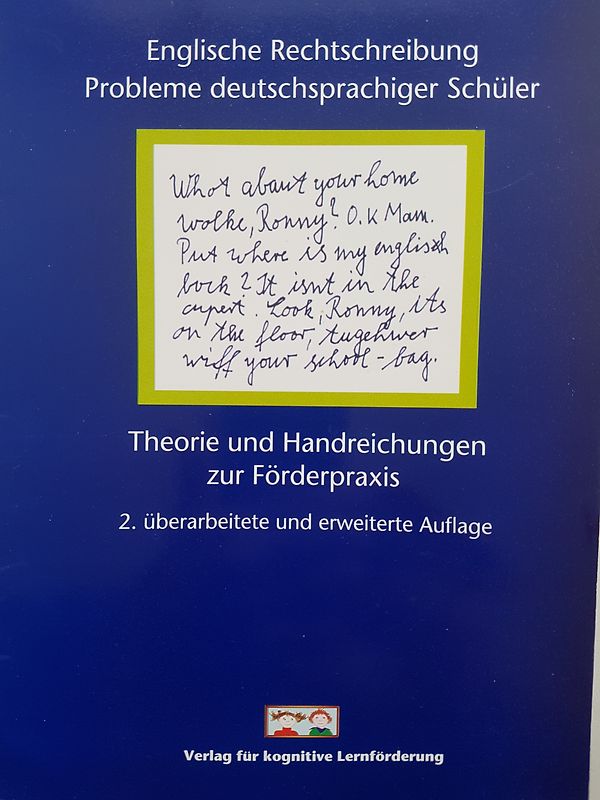 Englische Rechtschreibung
Probleme deutschsprachiger Schüler
Whot abaut your home
wolke, Ronny? O.K Mam.
Put where is my englisch
bock? It isnt in the
cupert. Look, Ronny, its
on the floor, tugehwer
wiff your school-bag.
Theorie und Handreichungen
zur Förderpraxis
2. überarbeitete und erweiterte Auflage
Verlag für kognitive Lernförderung